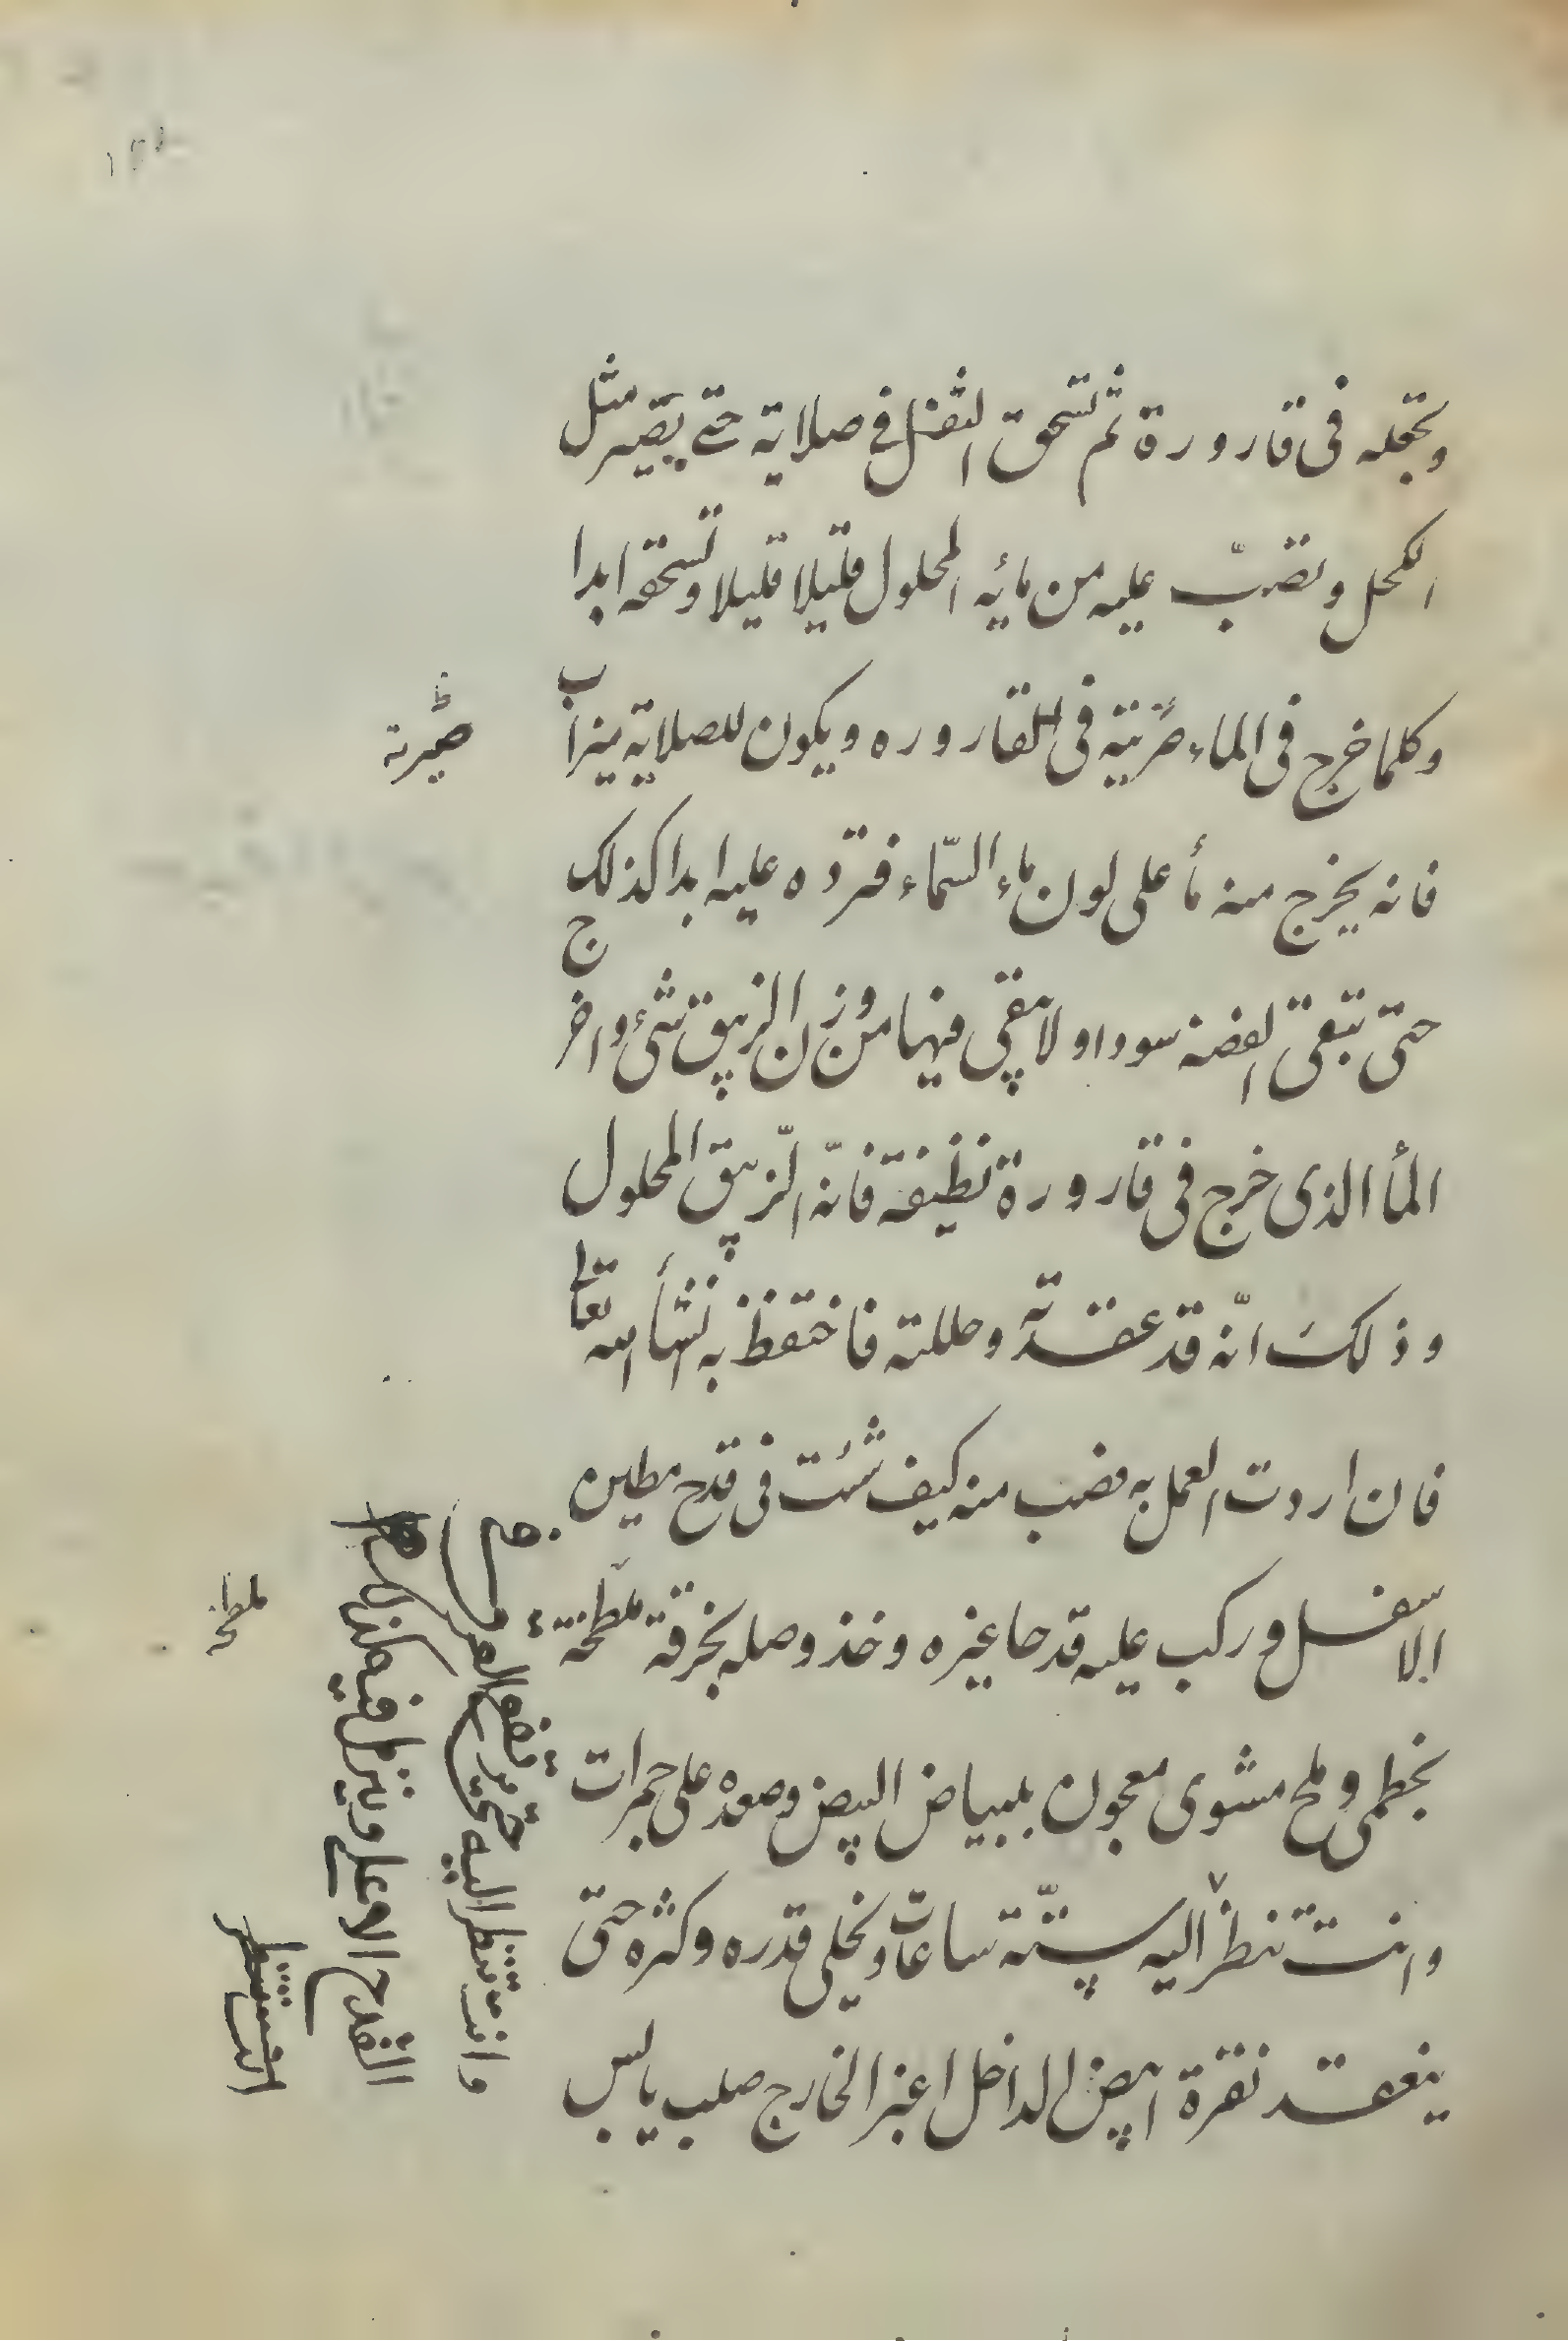 وتجعله فى قارورة ثم تسحق الثفل فى صلاية حتى يصير مثل
الكحل وتصبّ عليه من مائه المحلول قليلا قليلا وتسحقه ابدا
وكلما خرج فى الماء صرّيته فى القاروره ويكون للصلاية ميزاب
صيرته
فانه يخرج منه مأ على لون ماء السّماء فتردّه عليه ابدا كذلك
حتى تبقى الفضة سوداو لا يبقى فيها من وزن الزيبق شئ واخرج
المأ الذى خرج فى قارورة نظيفة فانّه الزّيبق المحلول
وذلك انّه قد عقدته وحللته فاحتفظ به انشأ الله تعالى
فان اردت العمل به فصب منه كيف شئت فى قدح مطين
الاسفل وركب عليه قدحا غيره وخذ وصله بخرقة ملطخة
ملطخ
بخطمى وملح مشوى معجون ببياض البيض وصعده على جمرات
وانت تنظر اليه ستّة ساعات ويخلى قدره وكثره حتى
ينعقد نقرة ابيض الداخل اغبر الخارج صلب يابس
وانت تنظر اليه حتى يرتفع
القدح الاعلى وينزل فيه